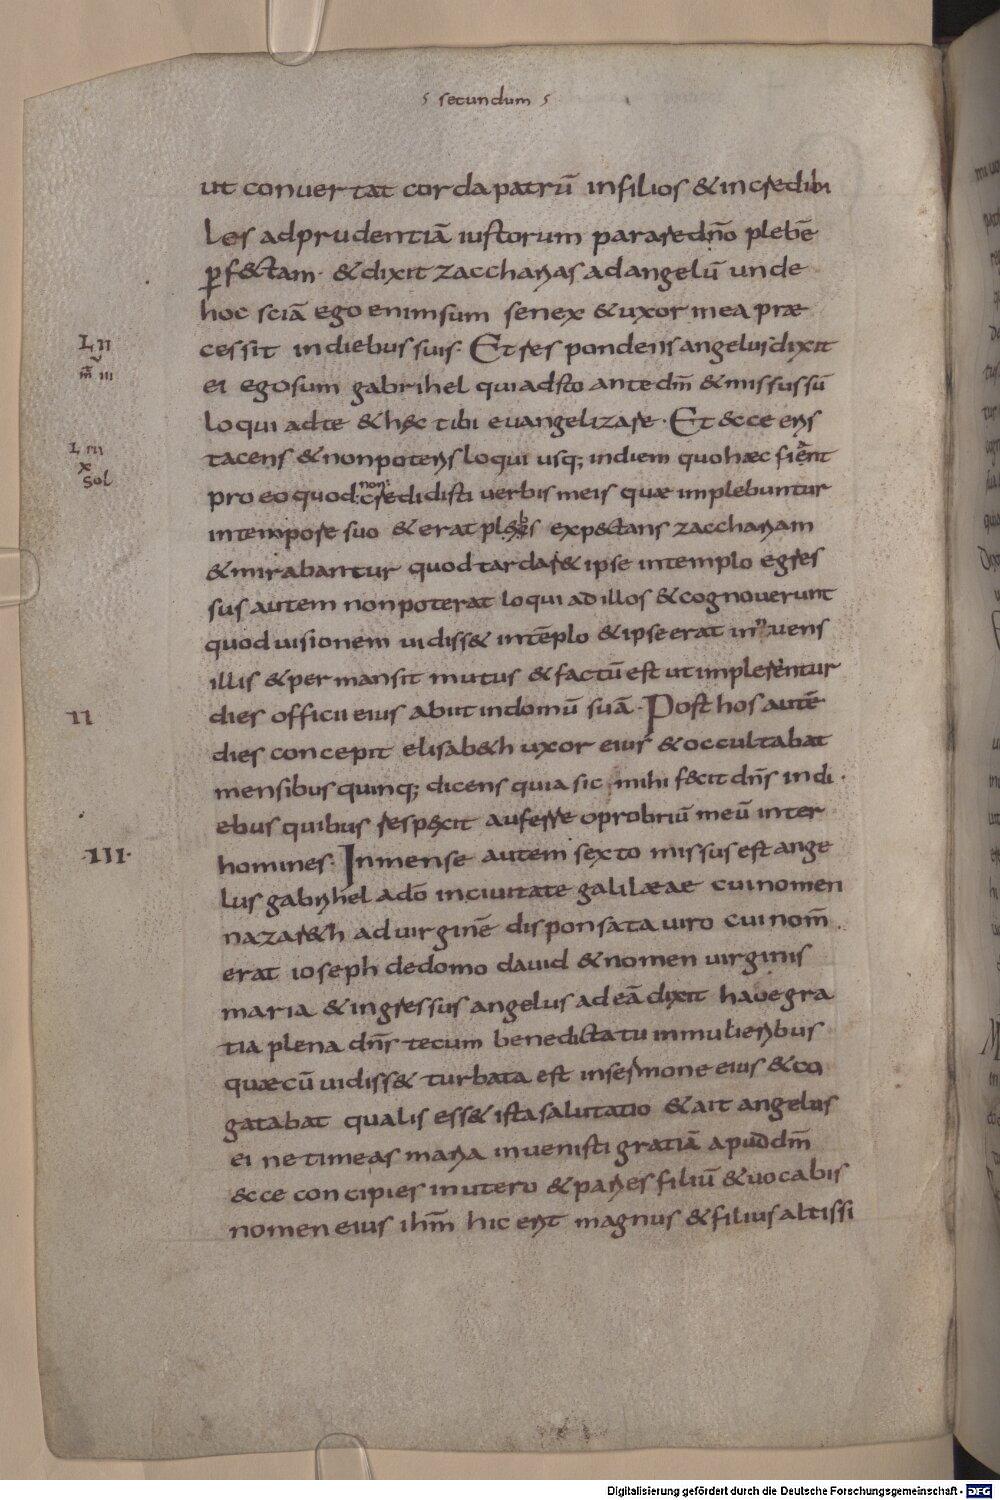 secundum
ut convertat corda patrū in filios & incredibi
les ad prudentiā iustorum parare dn̄o plebē
p̄f&ctam · & dixit zaccharias ad angelū unde
hoc sciā ego enim sum senex & uxor mea præ
cessit in diebus suis · Et respondens angelus dixit
L II
m̄ III
ei ego sum gabrihel qui adsto ante dm̄ & missus sū
loqui ad te & h&c tibi evangelizare · Et &cce eris
L III
x
sol
tacens & non poteris loqui usq; in diem quo hæc fient
pro eo quod non credidisti verbis meis quæ implebuntur
in tempore suo & erat plebs exp&ctans zacchariam
& mirabantur quod tardar& ipse in templo egres
sus autem non poterat loqui ad illos & cognoverunt
quod visionem vidiss& in tēplo & ipse erat innuens
illis & permansit mutus & factū est ut implerentur
II
dies officii eius abiit in domū suā · Post hos autē
dies concepit elisab&h uxor eius & occultabat
mensibus quinq; dicens quia sic mihi fecit dn̄s in di
ebus quibus resp&cit auferre oprobriū meū inter
·III·
homines · In mense autem sexto missus est ange
lus gabrihel a dō in civitate galilææ cui nomen
nazar&h ad virginē disponsata viro cui nom̄
erat ioseph de domo david & nomen virginis
maria & ingressus angelus ad eā dixit have gra
tia plena dn̄s tecum benedicta tu in mulieribus
quæ cū vidiss& turbata est in sermone eius & co
gatabat qualis ess& ista salutatio & ait angelus
ei ne timeas maria invenisti gratiā apud dm̄
&cce concipies in utero & paries filiū & vocabis
nomen eius ihm̄ hic erit magnus & filius altissi
Digitalisierung gefördert durch die Deutsche Forschungsgemeinschaft - DFG